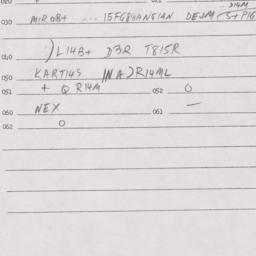 030 MIROB+ ... 15FG84ANSIAN DEJM S+PIG
040 )L14B+ D3R T815R
050 KARTI4S INA)R14ML
051 + Q R14M 052 O
060 NEX 061 —
062 O